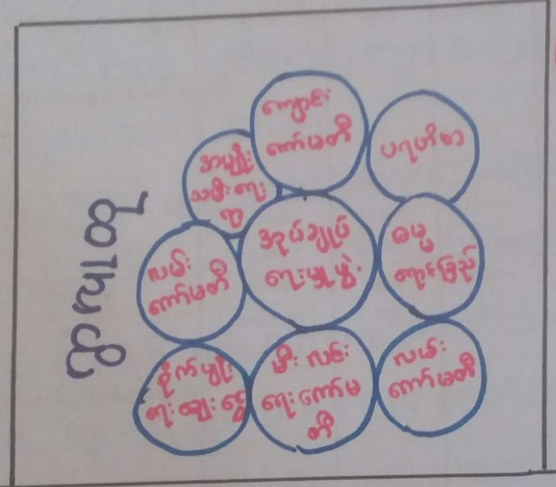 ကျောင်း
ကော်မတီ
ပရဟိတ
အမျိုး
သမီးရေး
ရာ
အုပ်ချုပ်
ရေးမှူးအဖွဲ့
ဓမ္မ
ရောင်ခြည်
လမ်း
ကော်မတီ
စိုက်ပျိုး
ရေးချေးငွေ
မီးလင်း
ရေးကော်မ
တီ
လမ်း
ကော်မတီ